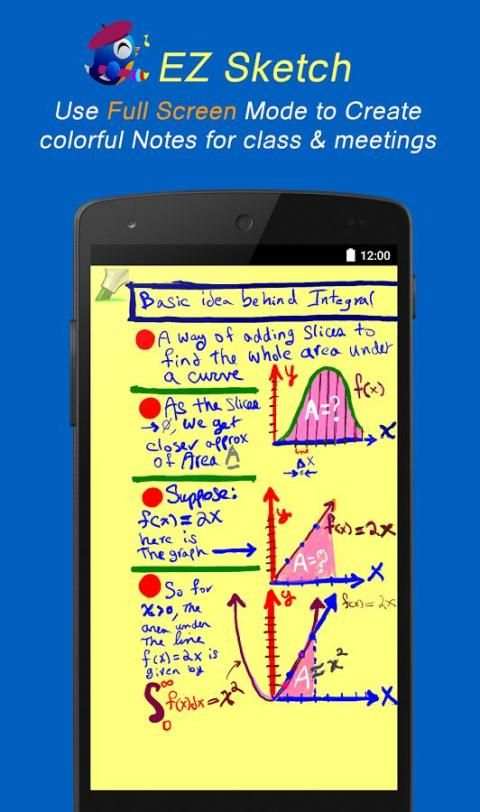 EZ Sketch
Use Full Screen Mode to Create
colorful Notes for class & meetings
12:00
Basic idea behind Integral
A way of adding Slices to
find the whole area under
a curve
y
f(x)
A=?
x
Δx
As the Slices
→0, we get
closer approx
of Area A
Suppose:
f(x)=2x
here is
The graph
y
f(x)=2x
A=?
x
So for
x>0, The
area under
The line
f(x)=2x is
given by
∫₀^∞ f(x)dx=x²
y
f(x)=2x
A=x²
x